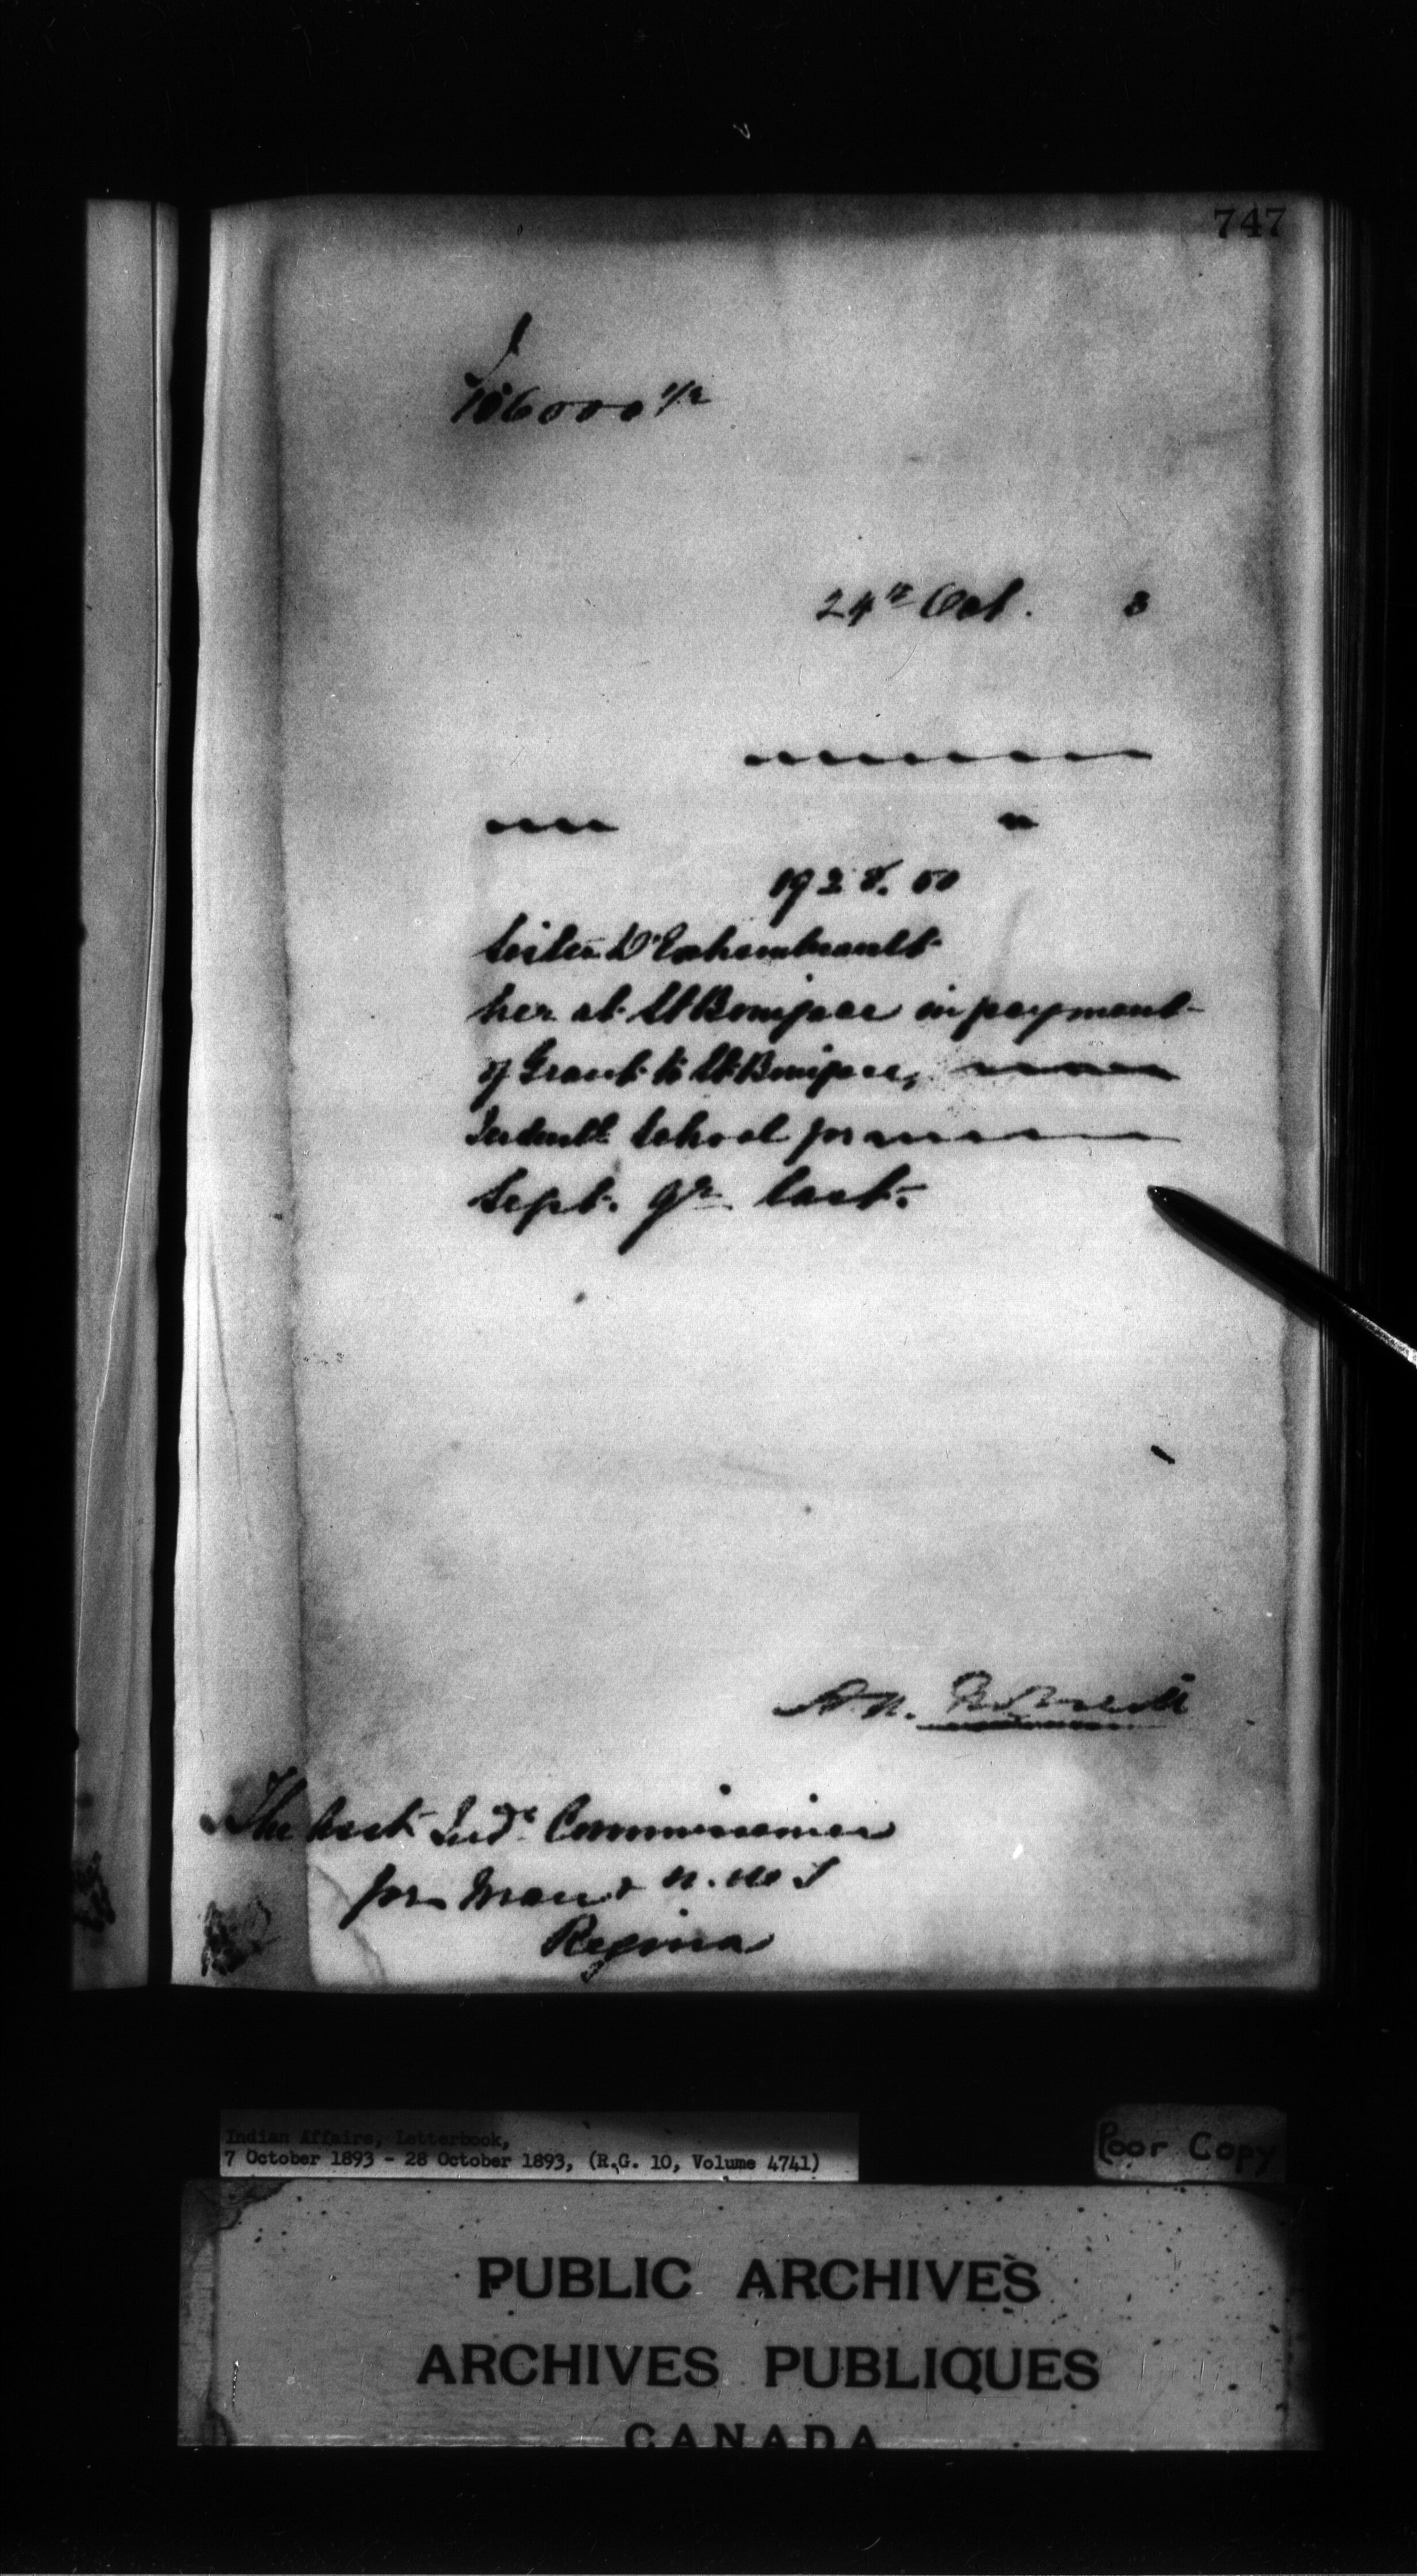 747
106000 1/2
24th Oct. 3
1928.00
Sister
her at St Boniface in payment
of Grant to St Boniface,
Industl School for
Sept. Qr. last.
The Asst Indn Commissioner
for Man & N.W.T
Regina
Indian Affairs, Letterbook,
7 October 1893 - 28 October 1893, (R.G. 10, Volume 4741)
Poor Copy
PUBLIC ARCHIVES
ARCHIVES PUBLIQUES
CANADA